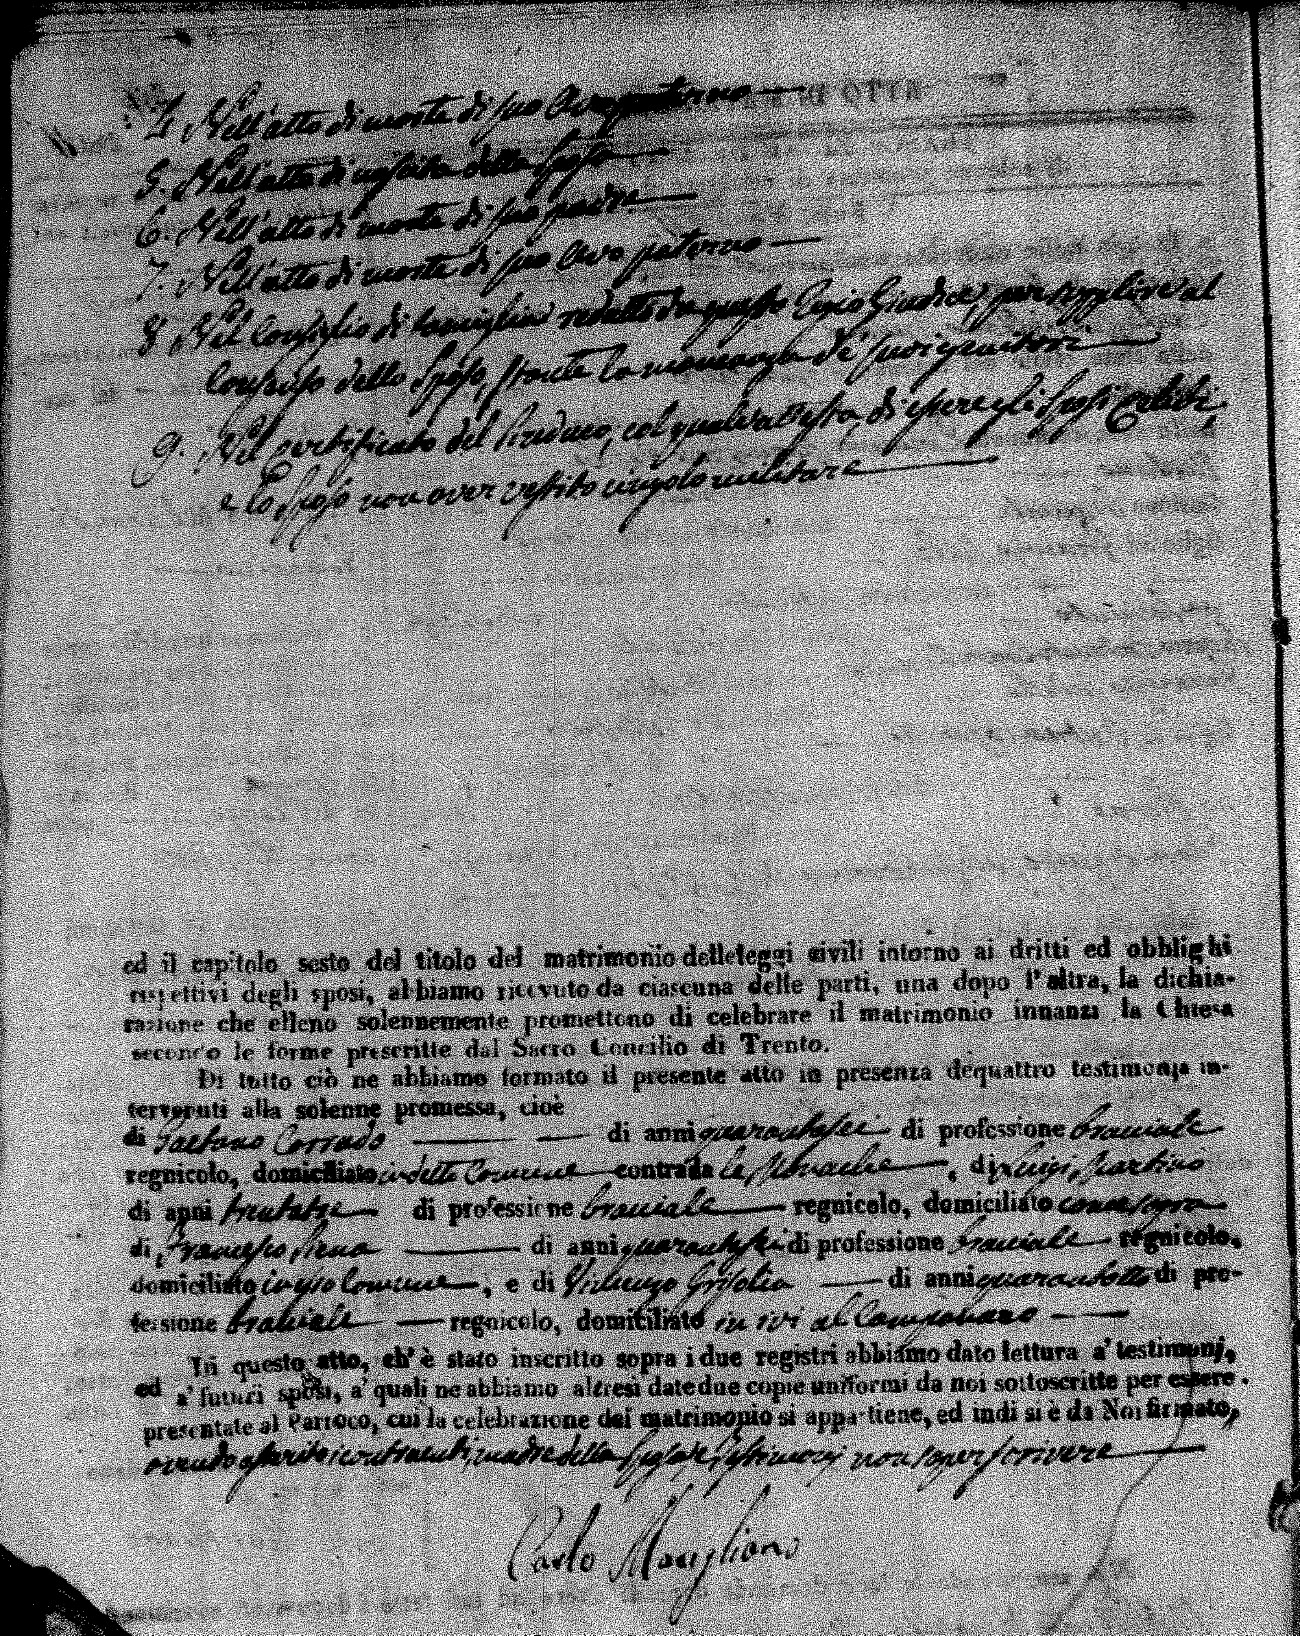 4. Nell'atto di morte di suo Avo paterno —
5. Nell'atto di nascita della Sposa —
6. Nell'atto di morte di suo padre —
7. Nell'atto di morte di suo Avo paterno —
8. Nel Consiglio di famiglia redatto da questo Regio Giudice, per supplire al
Consenso dello Sposo, stante la mancanza de' suoi genitori —
9. Nel certificato del Sindaco, col quale attesta, di essere gli Sposi celibi,
e lo Sposo non aver vestito cingolo militare —
ed il capitolo sesto del titolo del matrimonio delle leggi civili intorno ai dritti ed obblighi
rispettivi degli sposi, abbiamo ricevuto da ciascuna delle parti, una dopo l'altra, la dichia-
razione che elleno solennemente promettono di celebrare il matrimonio innanzi la Chiesa
secondo le forme prescritte dal Sacro Concilio di Trento.
Di tutto ciò ne abbiamo formato il presente atto in presenza de quattro testimonja in-
tervenuti alla solenne promessa, cioè
di Gaetano Corrado — di anni quarantasei di professione bracciale
regnicolo, domiciliato in detto Comune contrada le , di Luigi Martino
di anni trentatre di professione bracciale regnicolo, domiciliato come sopra
di Francesco Pena — di anni quarantasei di professione bracciale regnicolo,
domiciliato in esso Comune, e di Vincenzo Grisolia — di anni quarantotto di pro-
fessione bracciale — regnicolo, domiciliato in ivi al Campanaro —
In questo atto, ch'è stato inscritto sopra i due registri abbiamo dato lettura a' testimonj,
ed a' futuri sposi, a' quali ne abbiamo altresì date due copie uniformi da noi sottoscritte per essere
presentate al Parroco, cui la celebrazione del matrimonio si appartiene, ed indi si è da Noi firmato,
avendo asserito i contraenti, madre della Sposa, e Testimonj non saper scrivere —
Carlo Marigliano